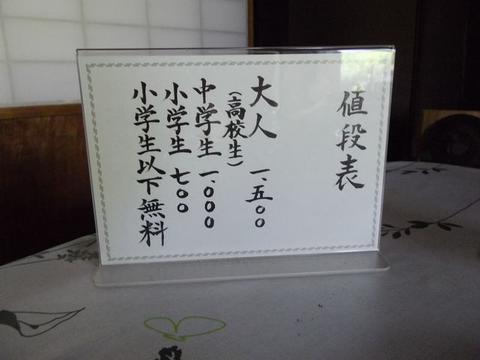 値段表
大人 一、五〇〇
(高校生)
中学生 一、〇〇〇
小学生 七〇〇
小学生以下無料